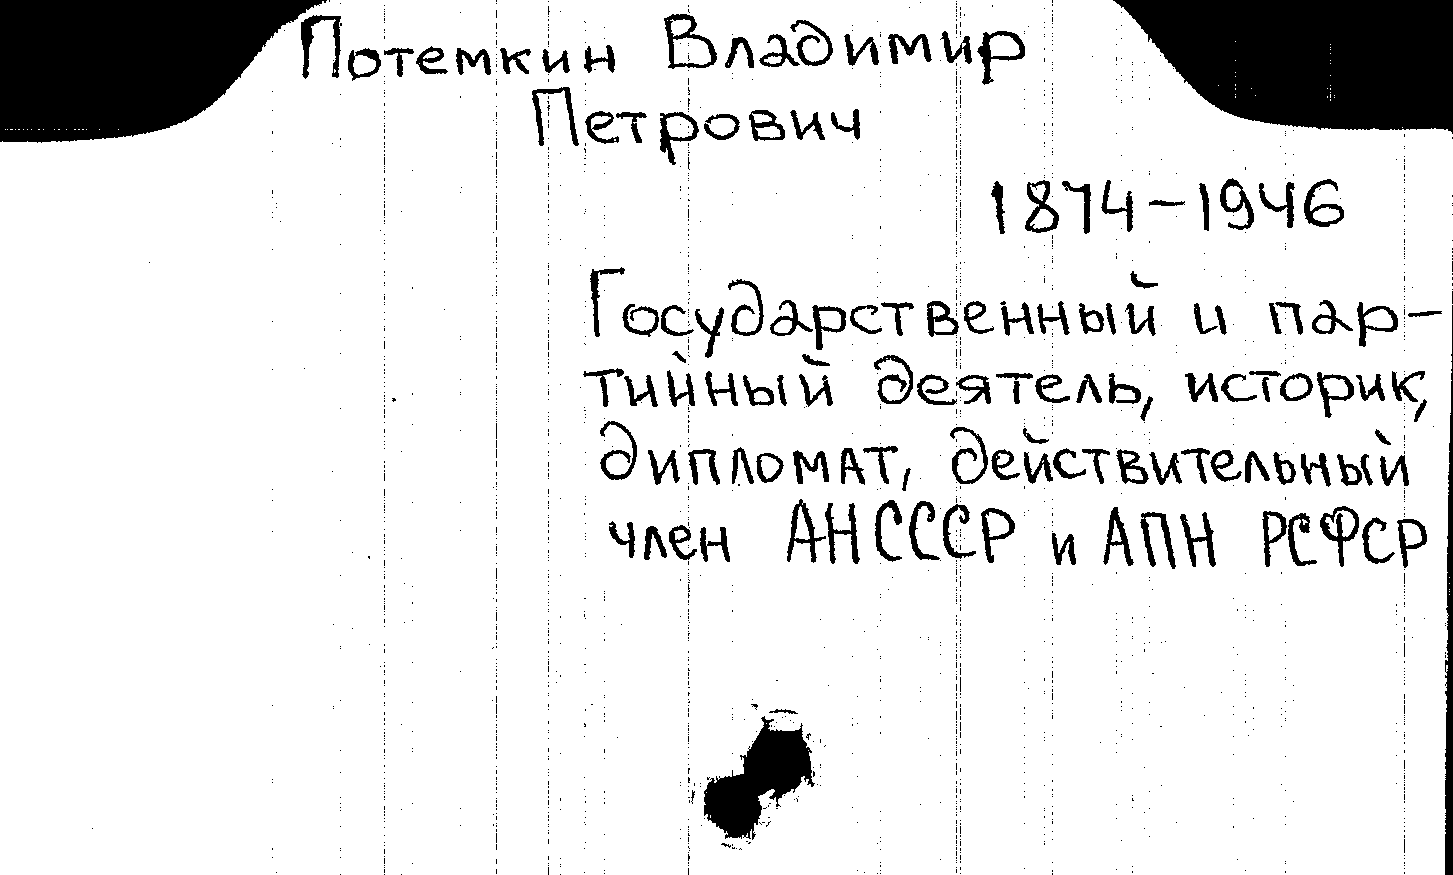 Потемкин Владимир
Петрович
1874-1946
Государственный и пар-
тийный деятель, историк,
дипломат, действительный
член АН СССР и АПН РСФСР